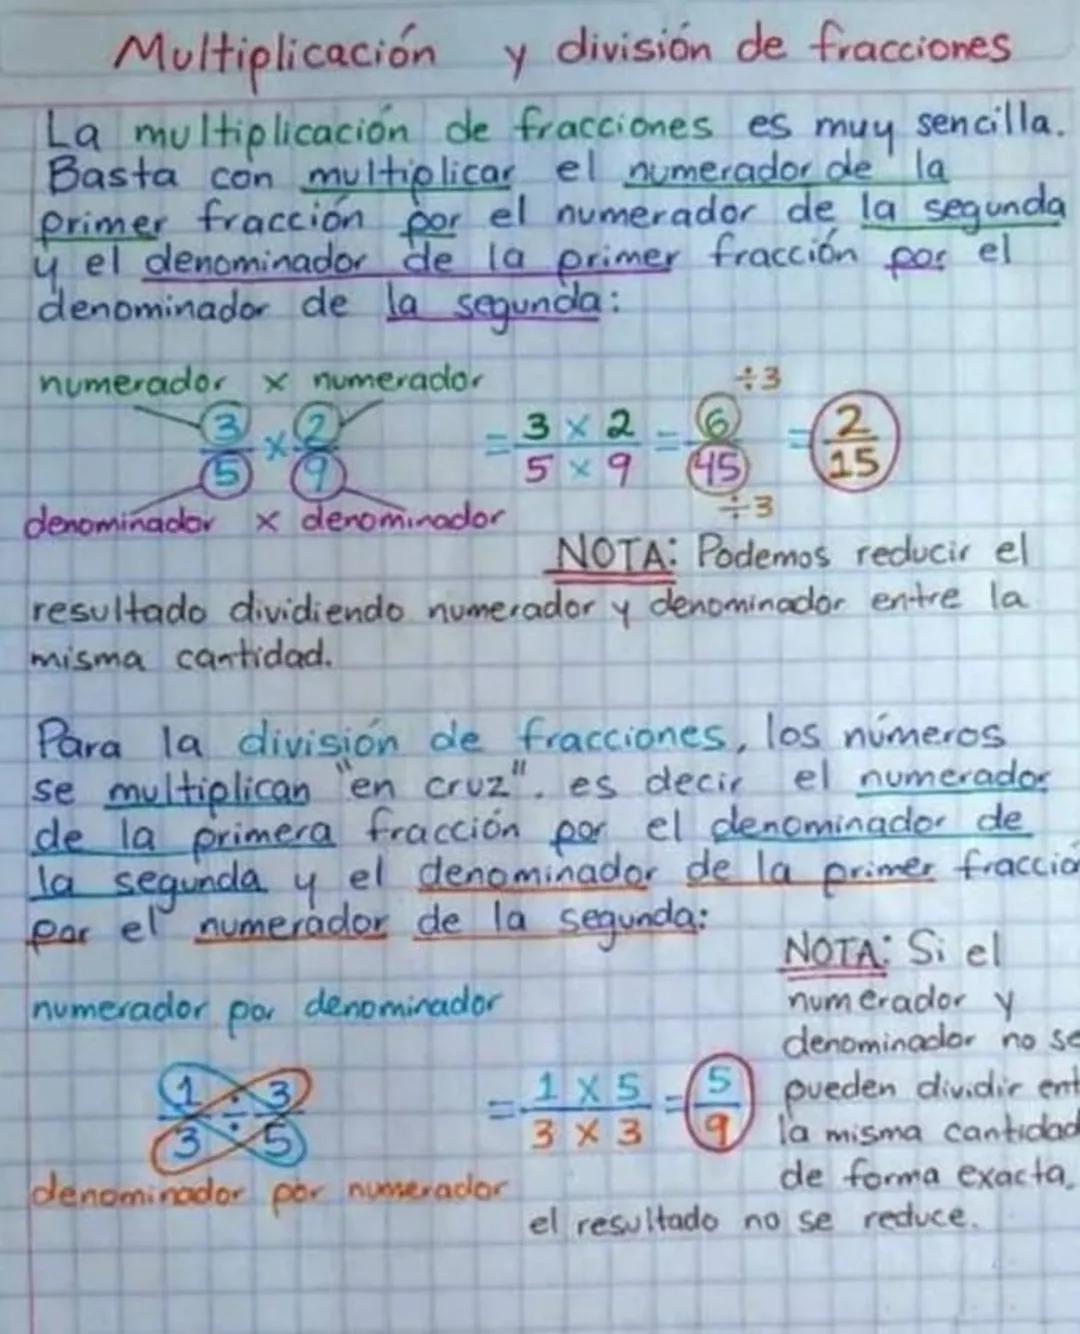 Multiplicación y división de fracciones
La multiplicación de fracciones es muy sencilla.
Basta con multiplicar el numerador de la
primer fracción por el numerador de la segunda
y el denominador de la primer fracción por el
denominador de la segunda:
numerador x numerador
3/5 x 2/9 = 3 x 2 / 5 x 9 = 6 ÷3 / 45 ÷3 = 2/15
denominador x denominador
NOTA: Podemos reducir el
resultado dividiendo numerador y denominador entre la
misma cantidad.
Para la división de fracciones, los números
se multiplican "en cruz". es decir el numerador
de la primera fracción por el denominador de
la segunda y el denominador de la primer fracció
por el numerador de la segunda:
numerador por denominador
1/3 ÷ 3/5 = 1 x 5 / 3 x 3 = 5/9
denominador por numerador
NOTA: Si el
numerador y
denominador no se
pueden dividir ent
la misma cantidad
de forma exacta,
el resultado no se reduce.